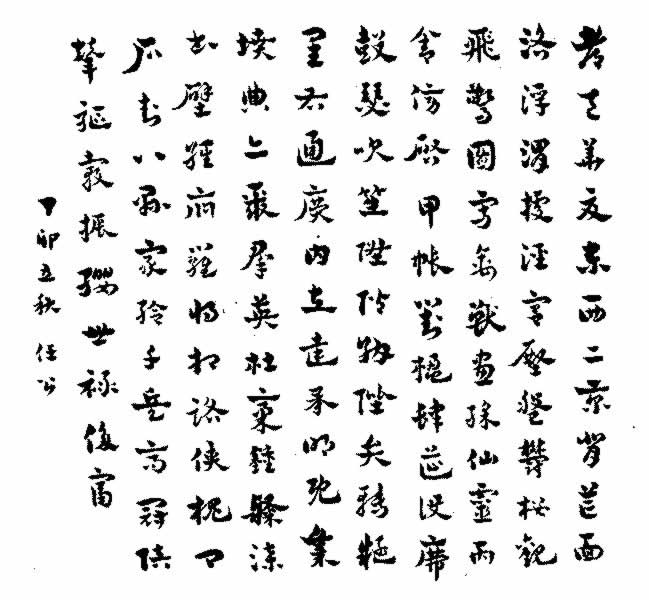 都邑華夏東西二京背芒面
洛浮渭據涇宮殿盤鬱樓觀
飛驚圖寫禽獸畫彩仙靈丙
舍傍啟甲帳對楹肆筵設席
鼓瑟吹笙陞階納陛弁轉疑
星右通廣內左達承明既集
墳典亦聚群英杜稾鍾隸漆
書壁經府羅將相路俠槐卿
戶封八縣家給千兵高冠陪
輦驅轂振纓世祿侈富
丁卯立秋 任公